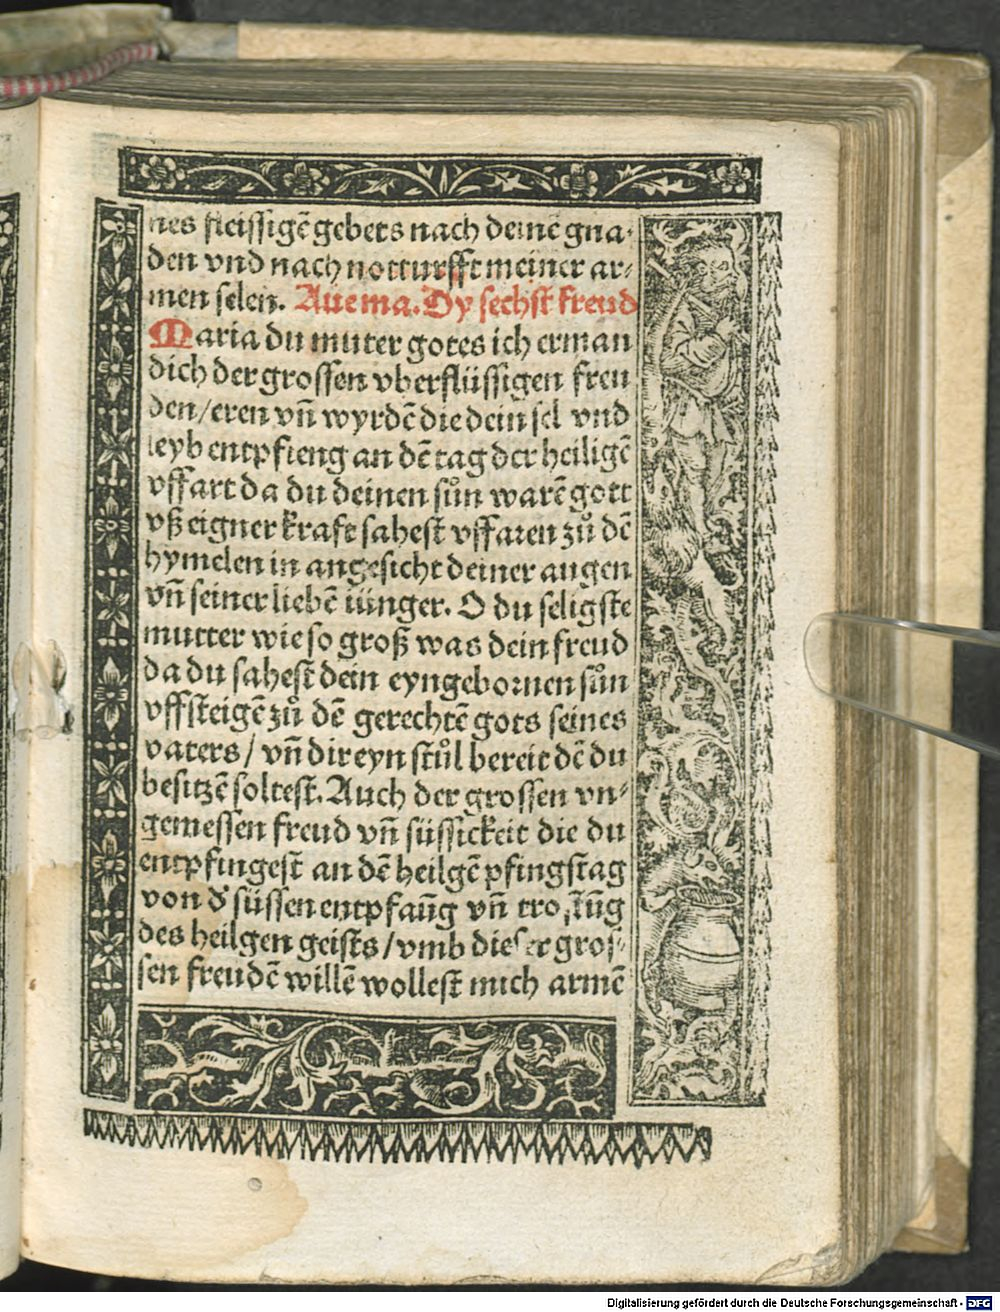 nes fleissigē gebets nach deinē gna⸗
den vnd nach notturfft meiner ar⸗
men selen. Aue ma. Dy sechst freud
Maria du muter gotes ich erman
dich der grossen vberflüssigen freu
den/eren vñ wyrdē die dein sel vnd
leyb entpfieng an dē tag der heiligē
vffart da du deinen sůn warē gott
vß eigner kraft sahest vffaren zů dē
hymelen in angesicht deiner augen
vñ seiner liebē iünger. O du seligste
mutter wie so groß was dein freud
da du sahest dein eyngebornen sůn
vffsteigē zů dē gerechtē gots seines
vaters/ vñ dir eyn stůl bereit dē du
besitzē soltest. Auch der grossen vn⸗
gemessen freud vñ süssickeit die du
entpfingest an dē heilgē pfingstag
von d' süssen entpfaūg vñ tröstūg
des heilgen geists/vmb dieser gros⸗
sen freudē willē wollest mich armē
Digitalisierung gefördert durch die Deutsche Forschungsgemeinschaft - DFG